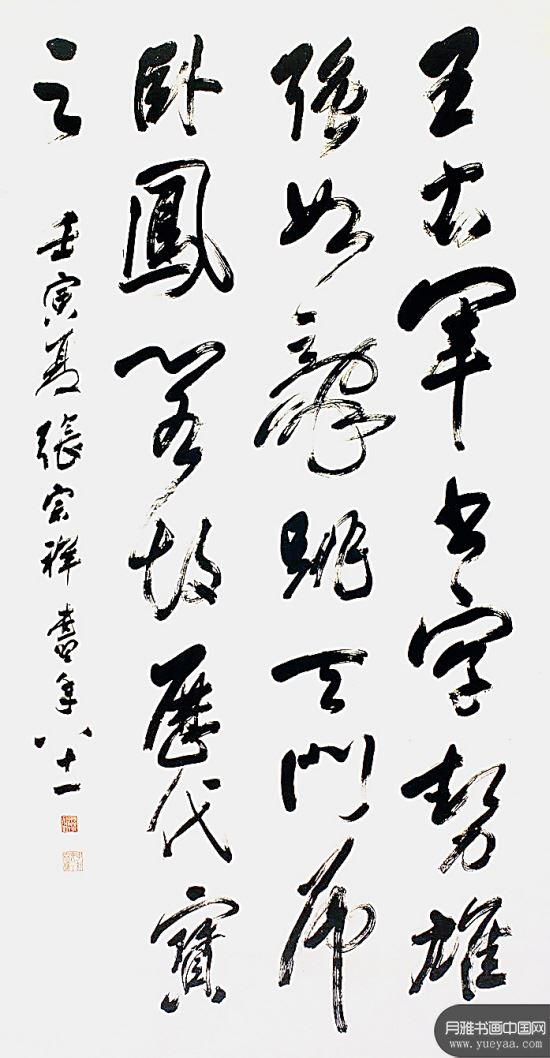 王右軍書字勢雄
強如龍跳天門虎
卧鳳閣故歷代寶
之
壬寅夏張宗祥書年八十一
月雅书画中国网
www.yueyaa.com